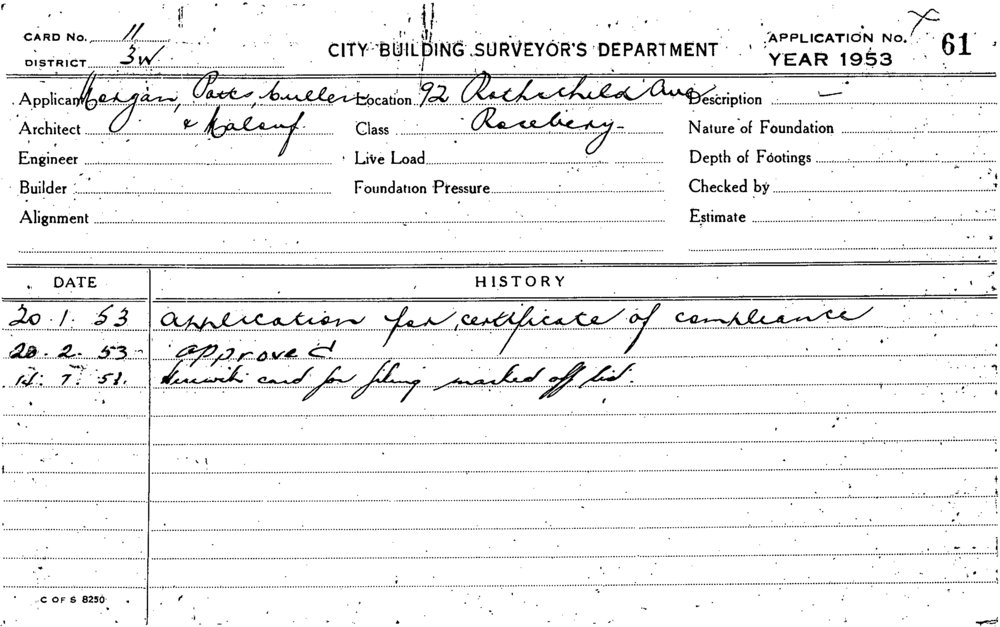 CARD No. 11
DISTRICT 3W
CITY BUILDING SURVEYOR'S DEPARTMENT
APPLICATION No. 61
YEAR 1953
Applicant Morgan, Potts, Cullen Location 92 Rothschild Ave Description —
Architect & Malouf Class Rosebery Nature of Foundation
Engineer Live Load Depth of Footings
Builder Foundation Pressure Checked by
Alignment Estimate
DATE HISTORY
20.1.53 Application for certificate of compliance
20.2.53 approved
Herewith card for filing marked off list.
C OF S 8250